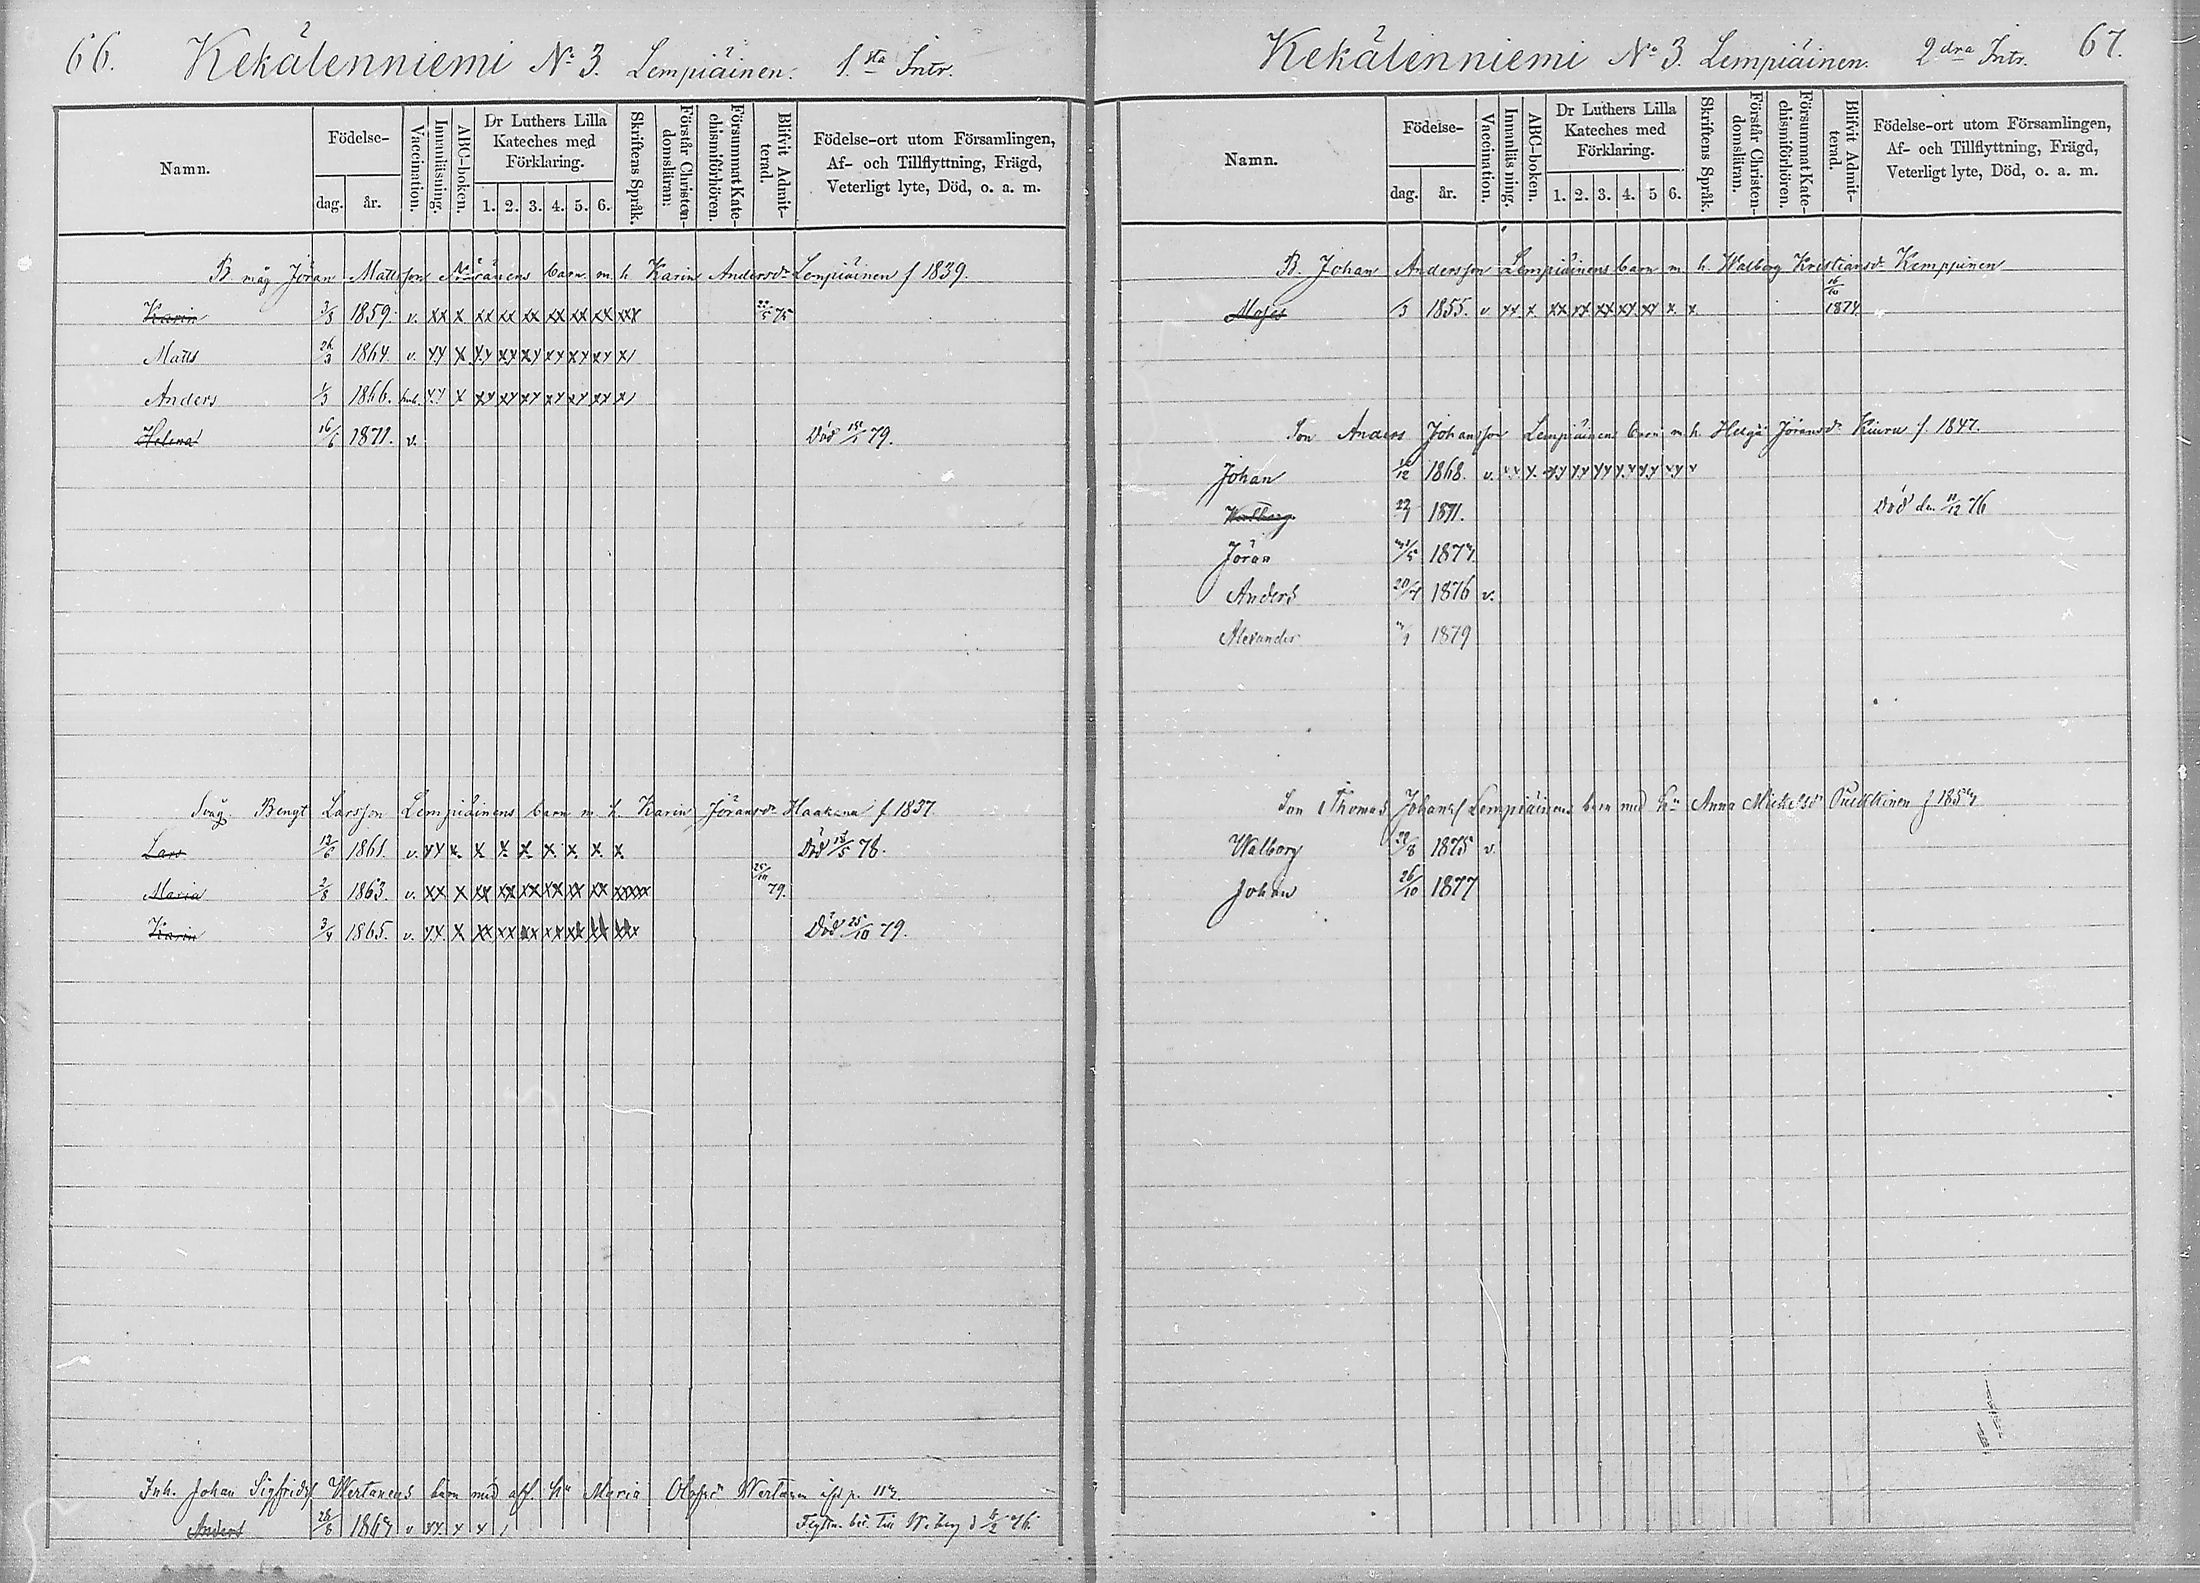 66. Kekälenniemi No 3. Lempiäinen. 1.sta Intr.
Namn.
Födelse-
dag.
år.
Vaccination.
Innanläsning.
ABC-boken.
Dr Luthers Lilla Kateches med Förklaring.
1. 2. 3. 4. 5. 6.
Skriftens Språk.
Förstår Christendomsläran.
Försummat Katechismiförhören.
Blifvit Admitterad.
Födelse-ort utom Församlingen, Af- och Tillflyttning, Frägd, Veterligt lyte, Död, o. a. m.
B. måg Jöran Mattsson barn m. h. Karin Andersdr Lempiäinen f 1839.
Karin 3/3 1859. v. xx x xx xx xx xx xx xx xxx 22/5 75
Matts 26/3 1864. v. xx x xx xx xx xx xx xx x/
Anders 1/3 1866. xx x xx xx xx xx xx xx x/
Helena 16/6 1871. v. Död 79.
Svåg. Bengt Larsson Lempiäinens barn m. h. Karin Jöransdr Haakana f 1837
Lars 12/6 1861. v. xx x. x. x. x. x. x. x. x. Död 18/5 78.
Maria 2/8 1863. v. xx x xx xx xx xx xx xx xxxxx 25/10 79.
Karin 3/4 1865. v. xx. x xx xx xxx xx xx xx xxx Död 25/10 79.
Inh. Johan Sigfridsf Wertanens barn med afl. hu Maria Olofsdr Wertanen
Anders 28/8 1867 v xx x x / Flyttn. bet. till W.borg d 76.
Kekälenniemi No 3. Lempiäinen. 2dra Intr. 67.
Namn.
Födelse-
dag.
år.
Vaccination.
Innanläsning.
ABC-boken.
Dr Luthers Lilla Kateches med Förklaring.
1. 2. 3. 4. 5 6.
Skriftens Språk.
Förstår Christendomsläran.
Försummat Katechismiförhören.
Blifvit Admitterad.
Födelse-ort utom Församlingen, Af- och Tillflyttning, Frägd, Veterligt lyte, Död, o. a. m.
B. Johan Andersson Lempiäinens barn m h. Walborg Kristiansdr Kemppinen
Moses /3 1855. v xx x xx xx xx xx xx x x 1874
Son Anders Johansson Lempiäinens barn m h. Helga Jöransdr Kiuru f 1847.
Johan 1868. v. xx x. xx xx xx xx xx xx x
Walborg 1871. Död den 11/12 76
Jöran 1874.
Anders 20/4 1876 v.
Alexander 1879
Son Thomas Johansf Lempiäinens barn med hu Anna Mickelsdr Puukkinen
Walborg 22/8 1875 v.
Johan 26/10 1877